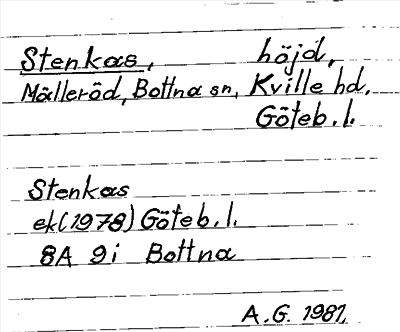 Stenkas, höjd,
Mälleröd, Bottna sn, Kville hd.
Göteb. l.
Stenkas
ek (1978) Göteb. l.
8A 9i Bottna
A.G. 1981.